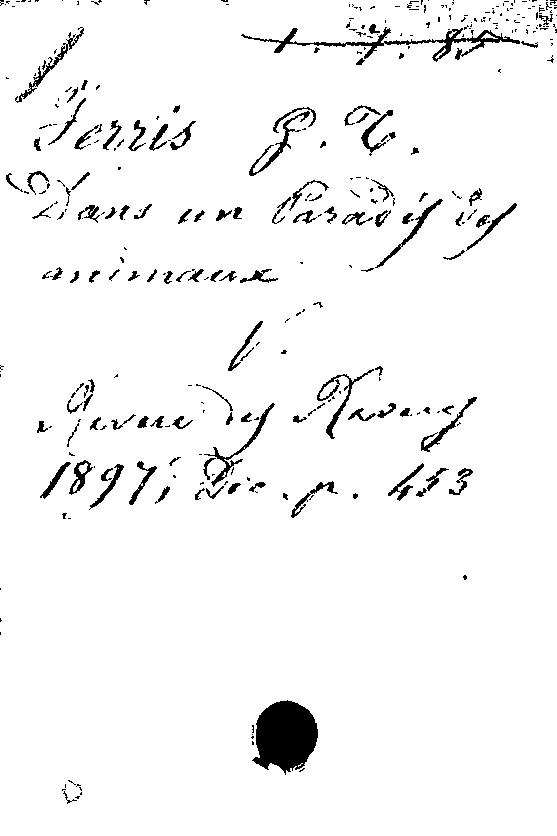 1. 7. 85
Ferris G. T.
Dans un Paradis des
animaux
V.
Revue des Revues
1897, Déc. p. 453